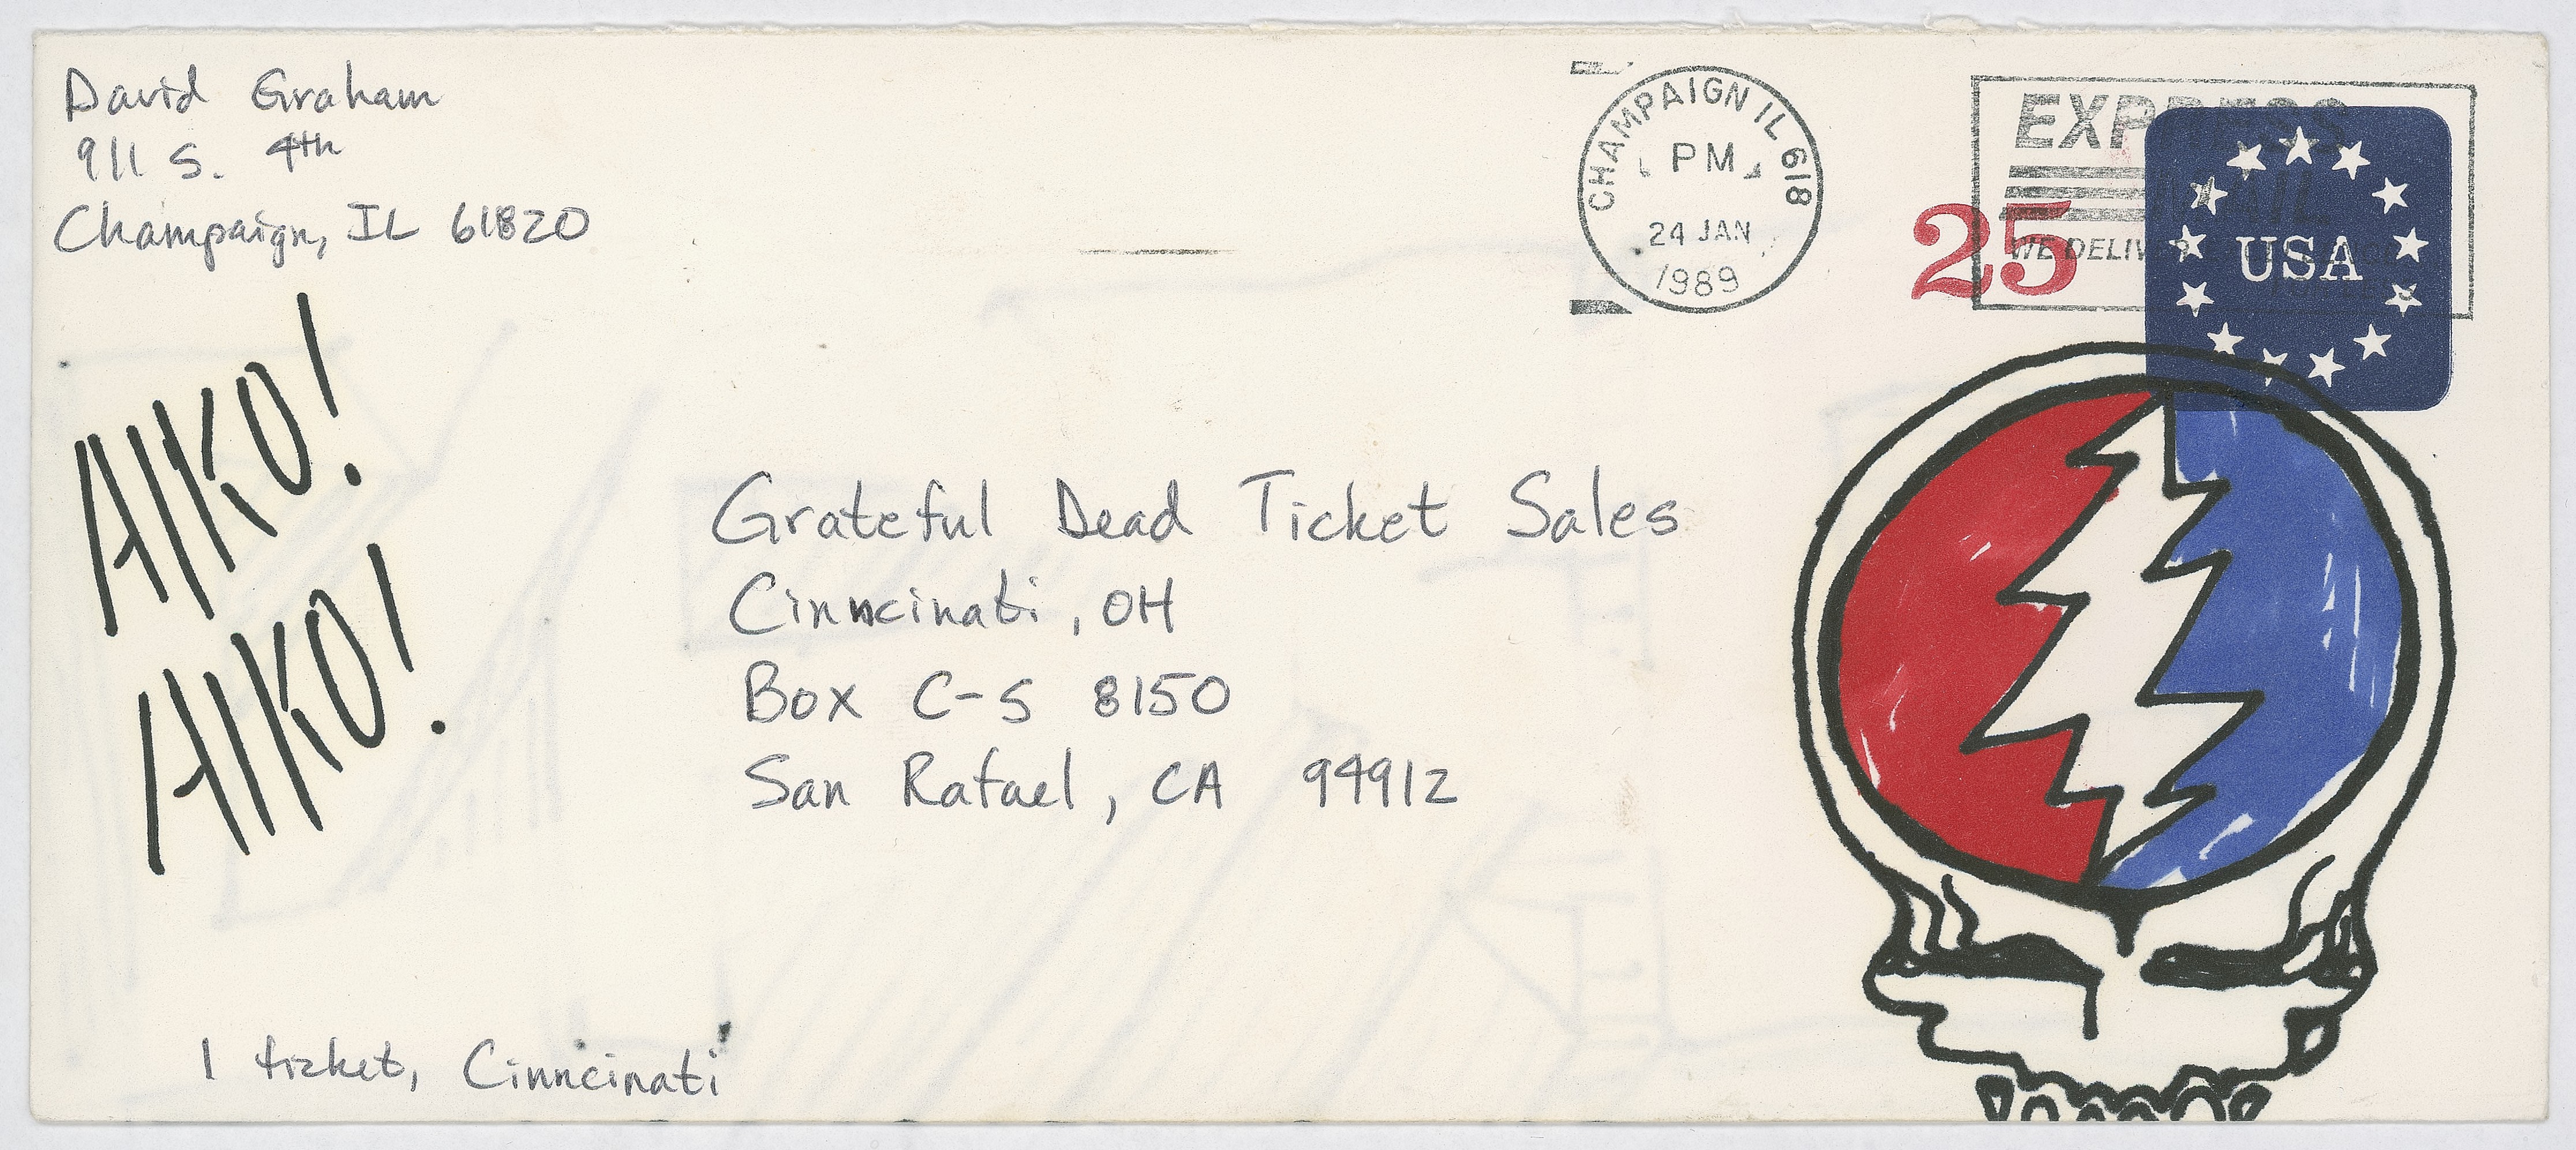 David Graham
911 S. 4th
Champaign, IL 61820
CHAMPAIGN IL 618
PM
24 JAN
1989
EXPRESS
WE DELIV
25
USA
AIKO!
AIKO!
Grateful Dead Ticket Sales
Cinncinati, OH
Box C-S 8150
San Rafael, CA 94912
1 ticket, Cinncinati